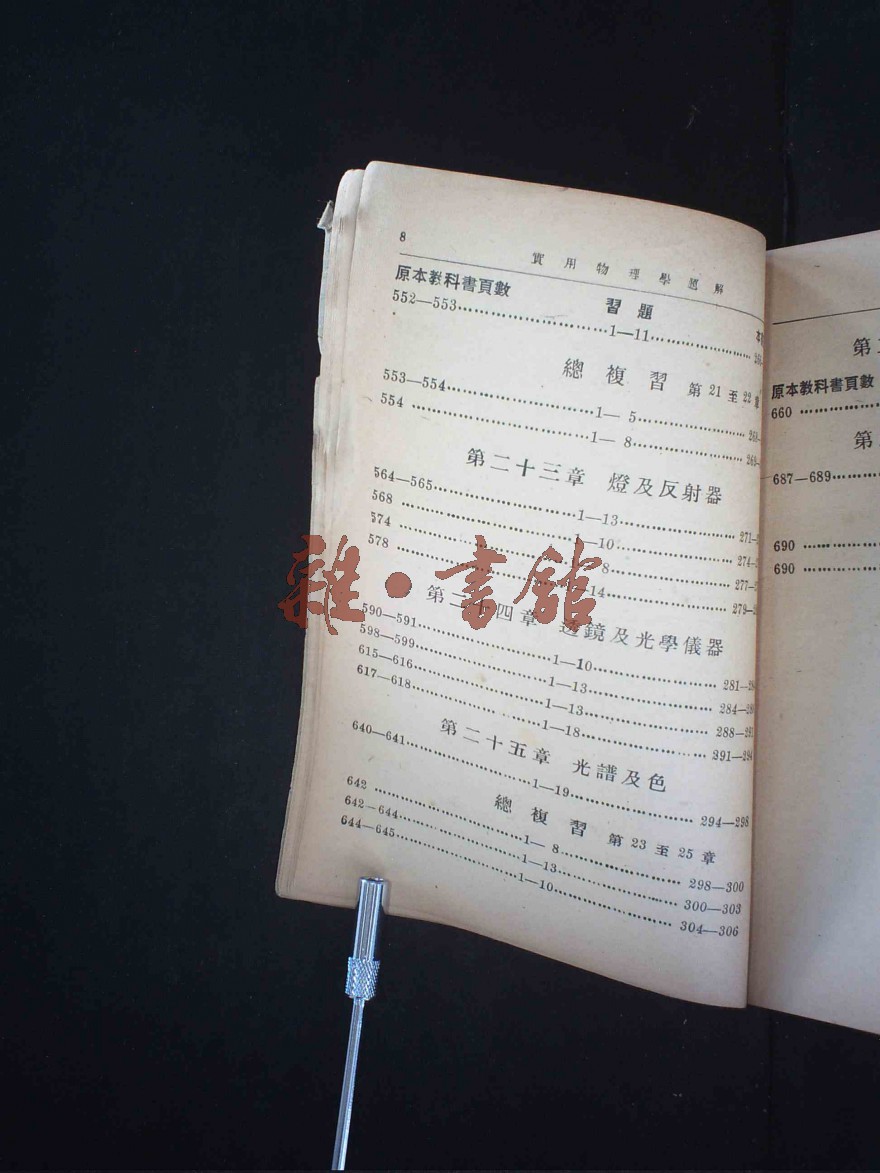 8
實用物理學題解
原本教科書頁數 習題
552—553 1—11
總複習 第21至22章
553—554 1— 5
554 1— 8
第二十三章 燈及反射器
564—565 1—13
568 1—10
574 8
578 14
第二十四章 透鏡及光學儀器
590—591 1—10
598—599 1—13
615—616 1—13
617—618 1—18
第二十五章 光譜及色
640—641 1—19 294—298
總複習 第23至25章
642 1— 8 298—300
642—644 1—13 300—303
644—645 1—10 304—306
雜·書館
原本教科書頁數
660
687—689
690
690